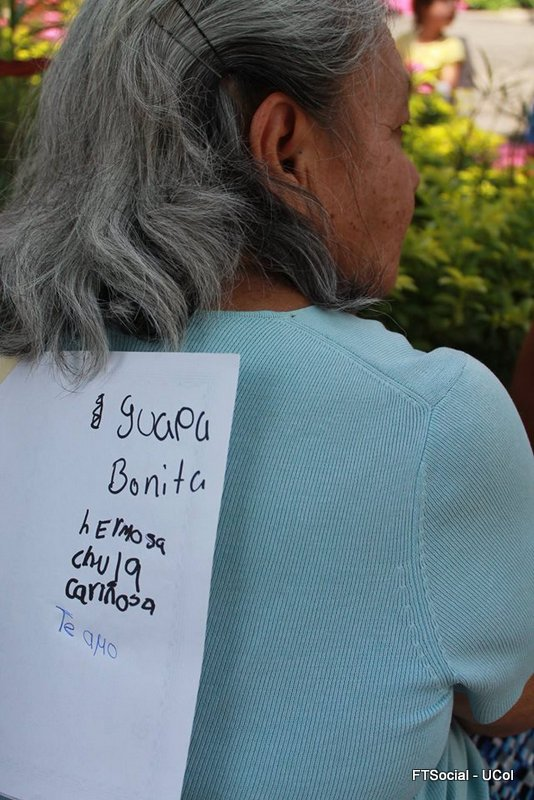 guapa
Bonita
hermosa
chula
cariñosa
Te amo
FTSocial - UCol